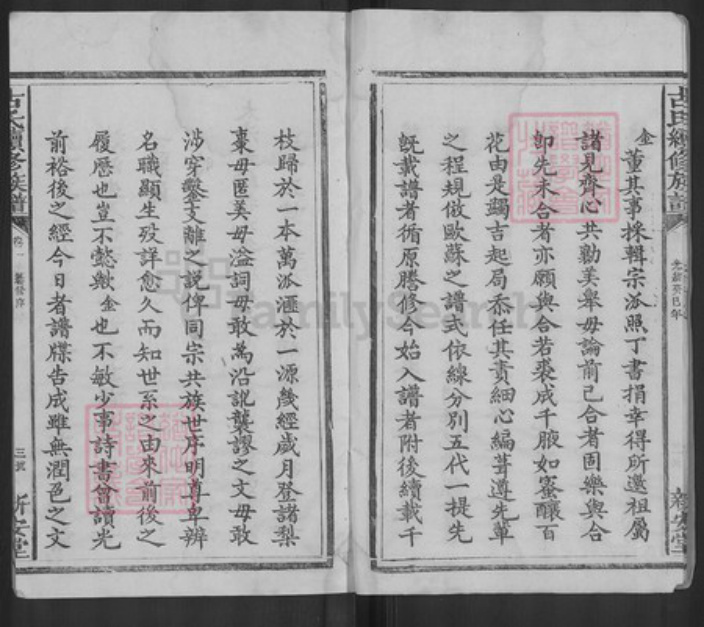 古氏續修族譜
光緒癸巳年
新安堂
金董其事採輯宗派照丁書捐幸得所邀祖屬
諸見齊心共勷美舉毋論前已合者固樂與合
即先未合者亦願與合若裘成千腋如蜜釀百
花由是蠲吉起局忝任其責細心編葺遵先軰
之程規倣歐蘇之譜式依線分別五代一提先
旣載譜者循原謄修今始入譜者附後續載千
枝歸於一本萬派滙於一源幾經歲月登諸梨
棗毋匿美毋溢詞毋敢為沿訛襲謬之文毋敢
涉穿鑿支離之說俾同宗共族世序明尊卑辨
名職顯生歿詳愈久而知世系之由來前後之
履歷也豈不懿歟金也不敏少事詩書曾讀光
前裕後之經今日者譜牒告成雖無潤色之文
古氏續修族譜
卷一
三號
新安堂
FamilySearch